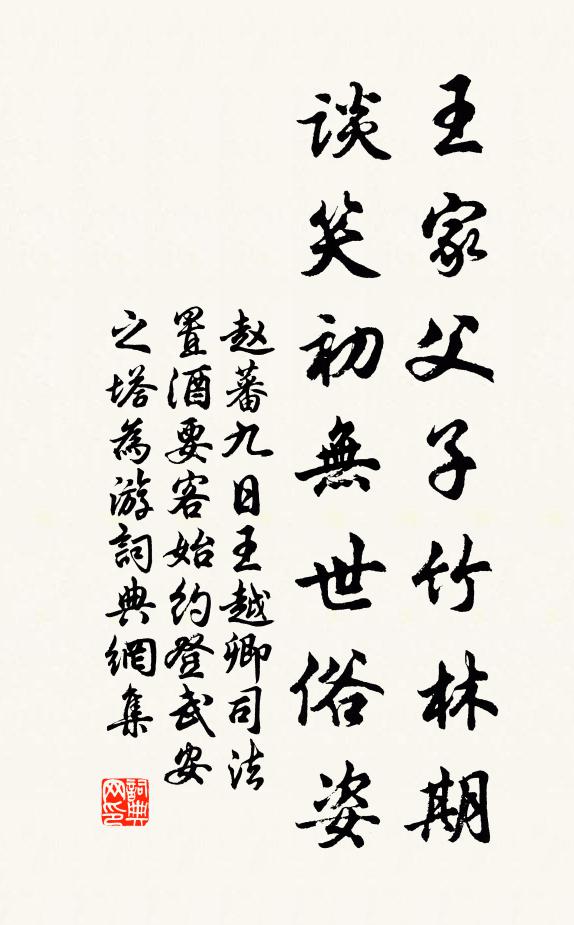 王家父子竹林期
談笑初無世俗姿
赵蕃九日王越卿司法
置酒要客始约登武安
之塔為游詞典網集
詞典网印